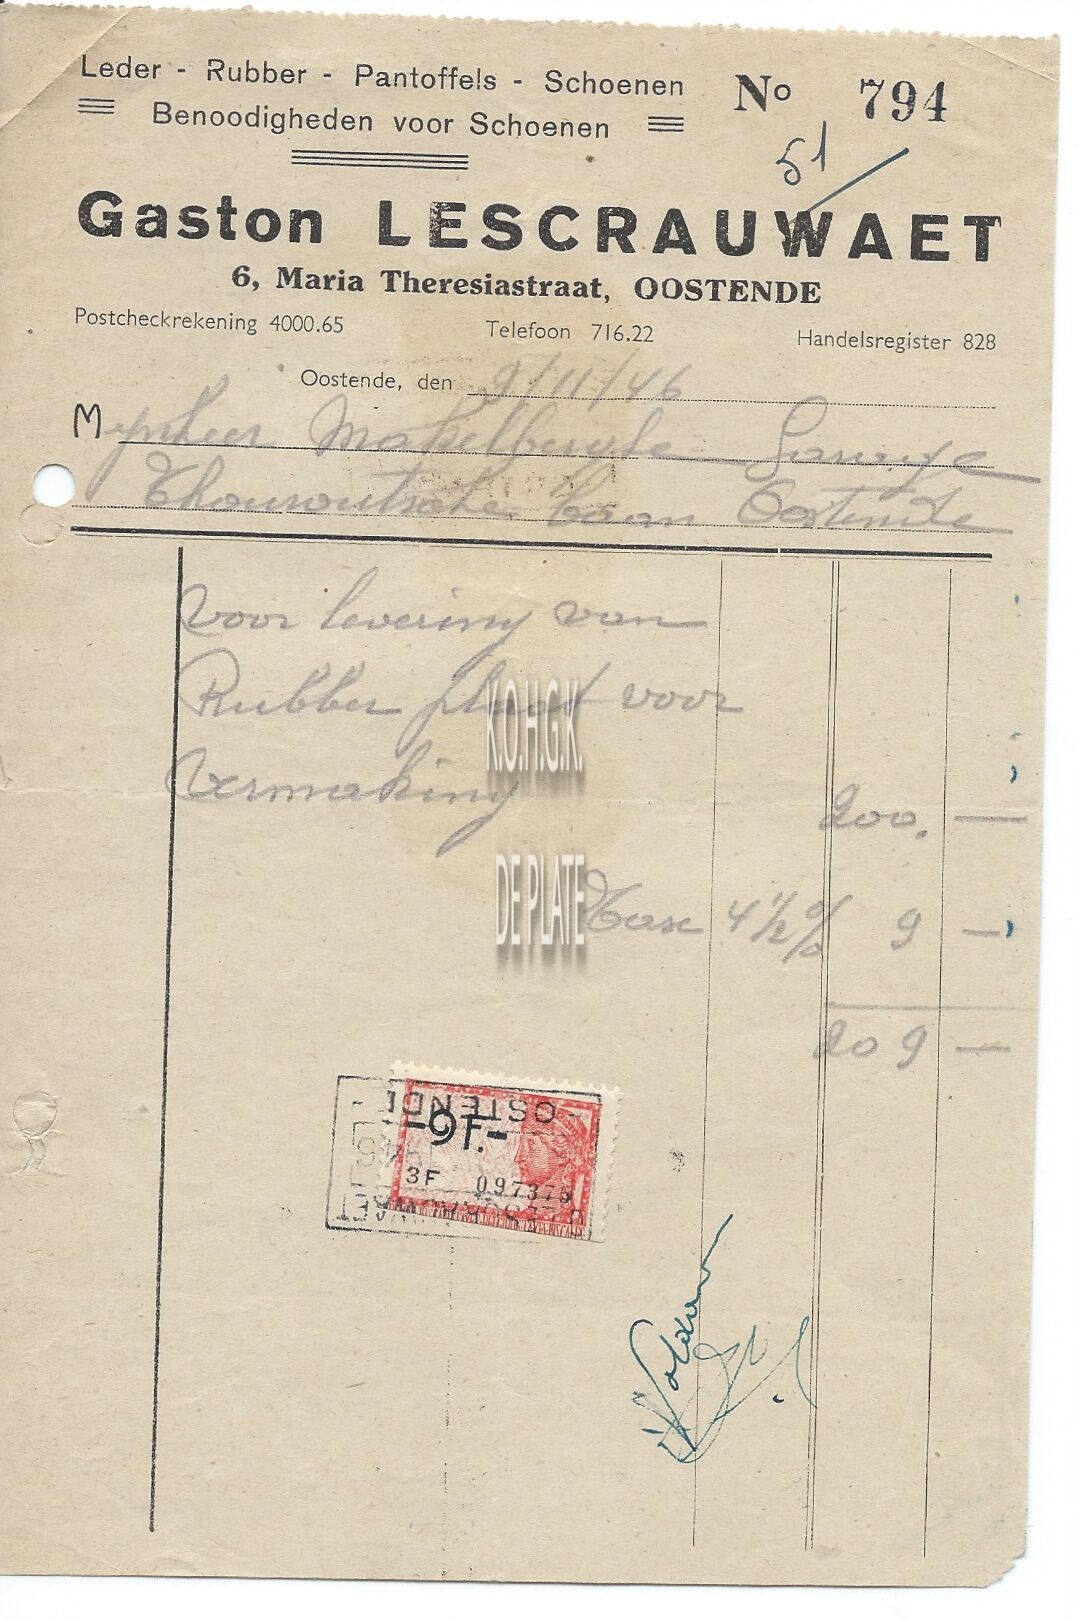 Leder - Rubber - Pantoffels - Schoenen
Benoodigheden voor Schoenen
No 794
51
Gaston LESCRAUWAET
6, Maria Theresiastraat, OOSTENDE
Postcheckrekening 4000.65 Telefoon 716.22 Handelsregister 828
Oostende, den 9/11/46
Mynheer Makelberghe Garage
Thouroutsche baan Oostende
Voor levering van
Rubber plaat voor
Vermaking
200. —
Taxe 4 1/2 % 9 —
209 —
K.O.H.G.K.
DE PLATE
OSTENDE
-9F.-
3F 097375
LESCRAUWAET
Voldaan